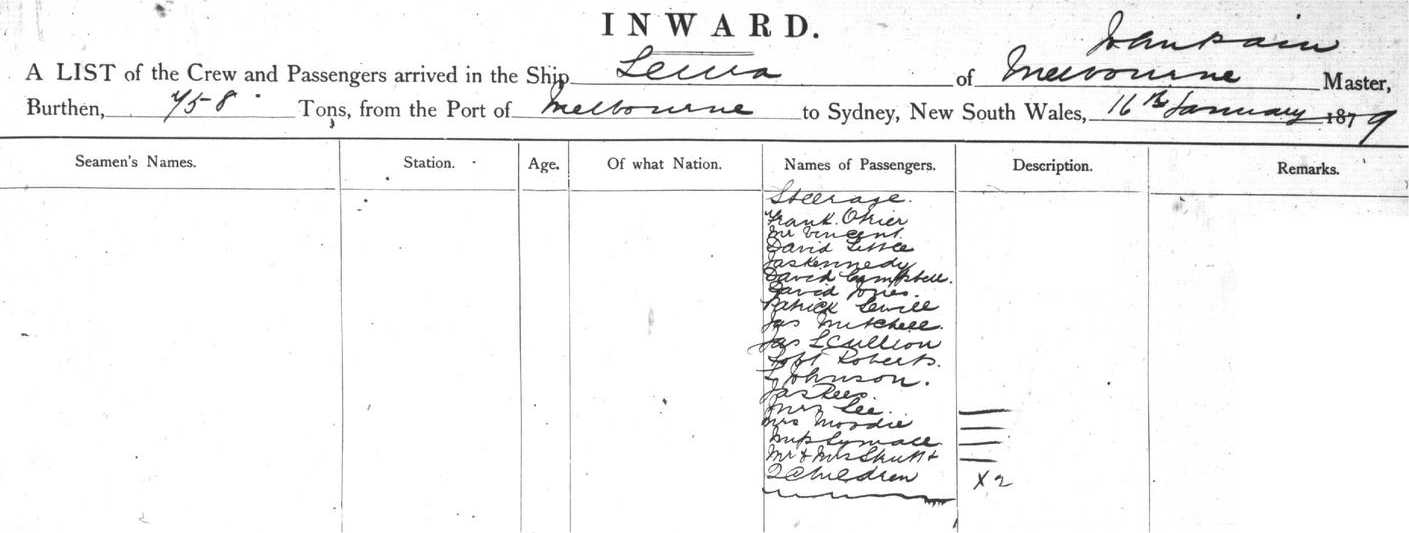 INWARD.
John Pain
A LIST of the Crew and Passengers arrived in the Ship Leura of Melbourne Master,
Burthen, 758 Tons, from the Port of Melbourne to Sydney, New South Wales, 16th January 1879
Seamen's Names. Station. Age. Of what Nation. Names of Passengers. Description. Remarks.
Steerage.
Frank
Mr Vincent.
David Little
Jas Kennedy
David Campbell.
David Jones.
Patrick
Jas Mitchell.
Jas
Robt Roberts.
Johnson.
Jas Rees.
Mrs Lee.
Mrs Moodie
Miss
Mr & Mrs &
2 Children
X 2